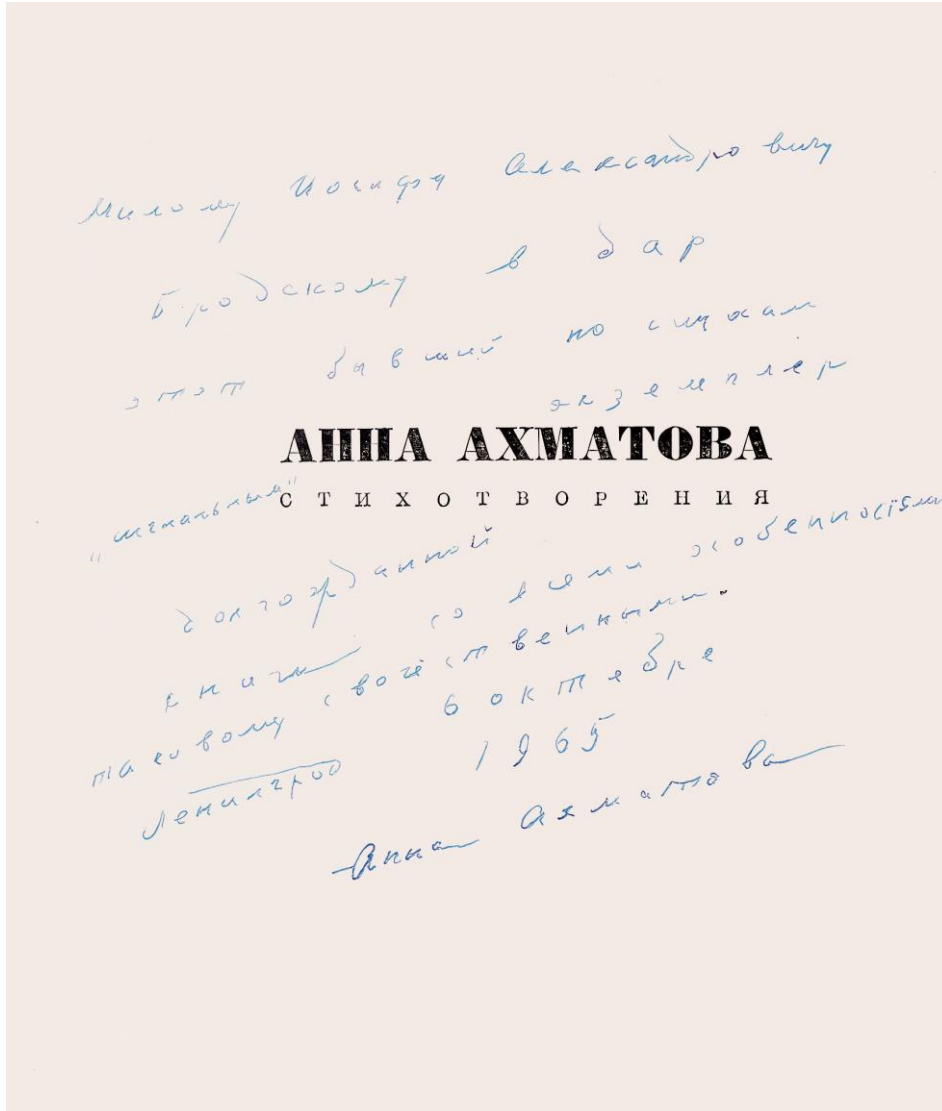 Милому Иосифу Александровичу
Бродскому в дар
этот бывший по слухам
экземпляр
АННА АХМАТОВА
СТИХОТВОРЕНИЯ
долгожданной
книги со всеми особенностями
таковому свойственными.
Ленинград 6 октября
1965
Анна Ахматова